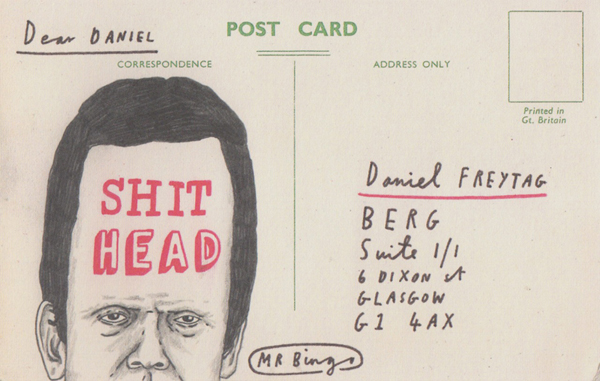 Dear DANIEL
POST CARD
CORRESPONDENCE
ADDRESS ONLY
Printed in
Gt. Britain
SHIT
HEAD
Daniel FREYTAG
BERG
Suite 1/1
6 DIXON st
GLASGOW
G1 4AX
MR Bingo